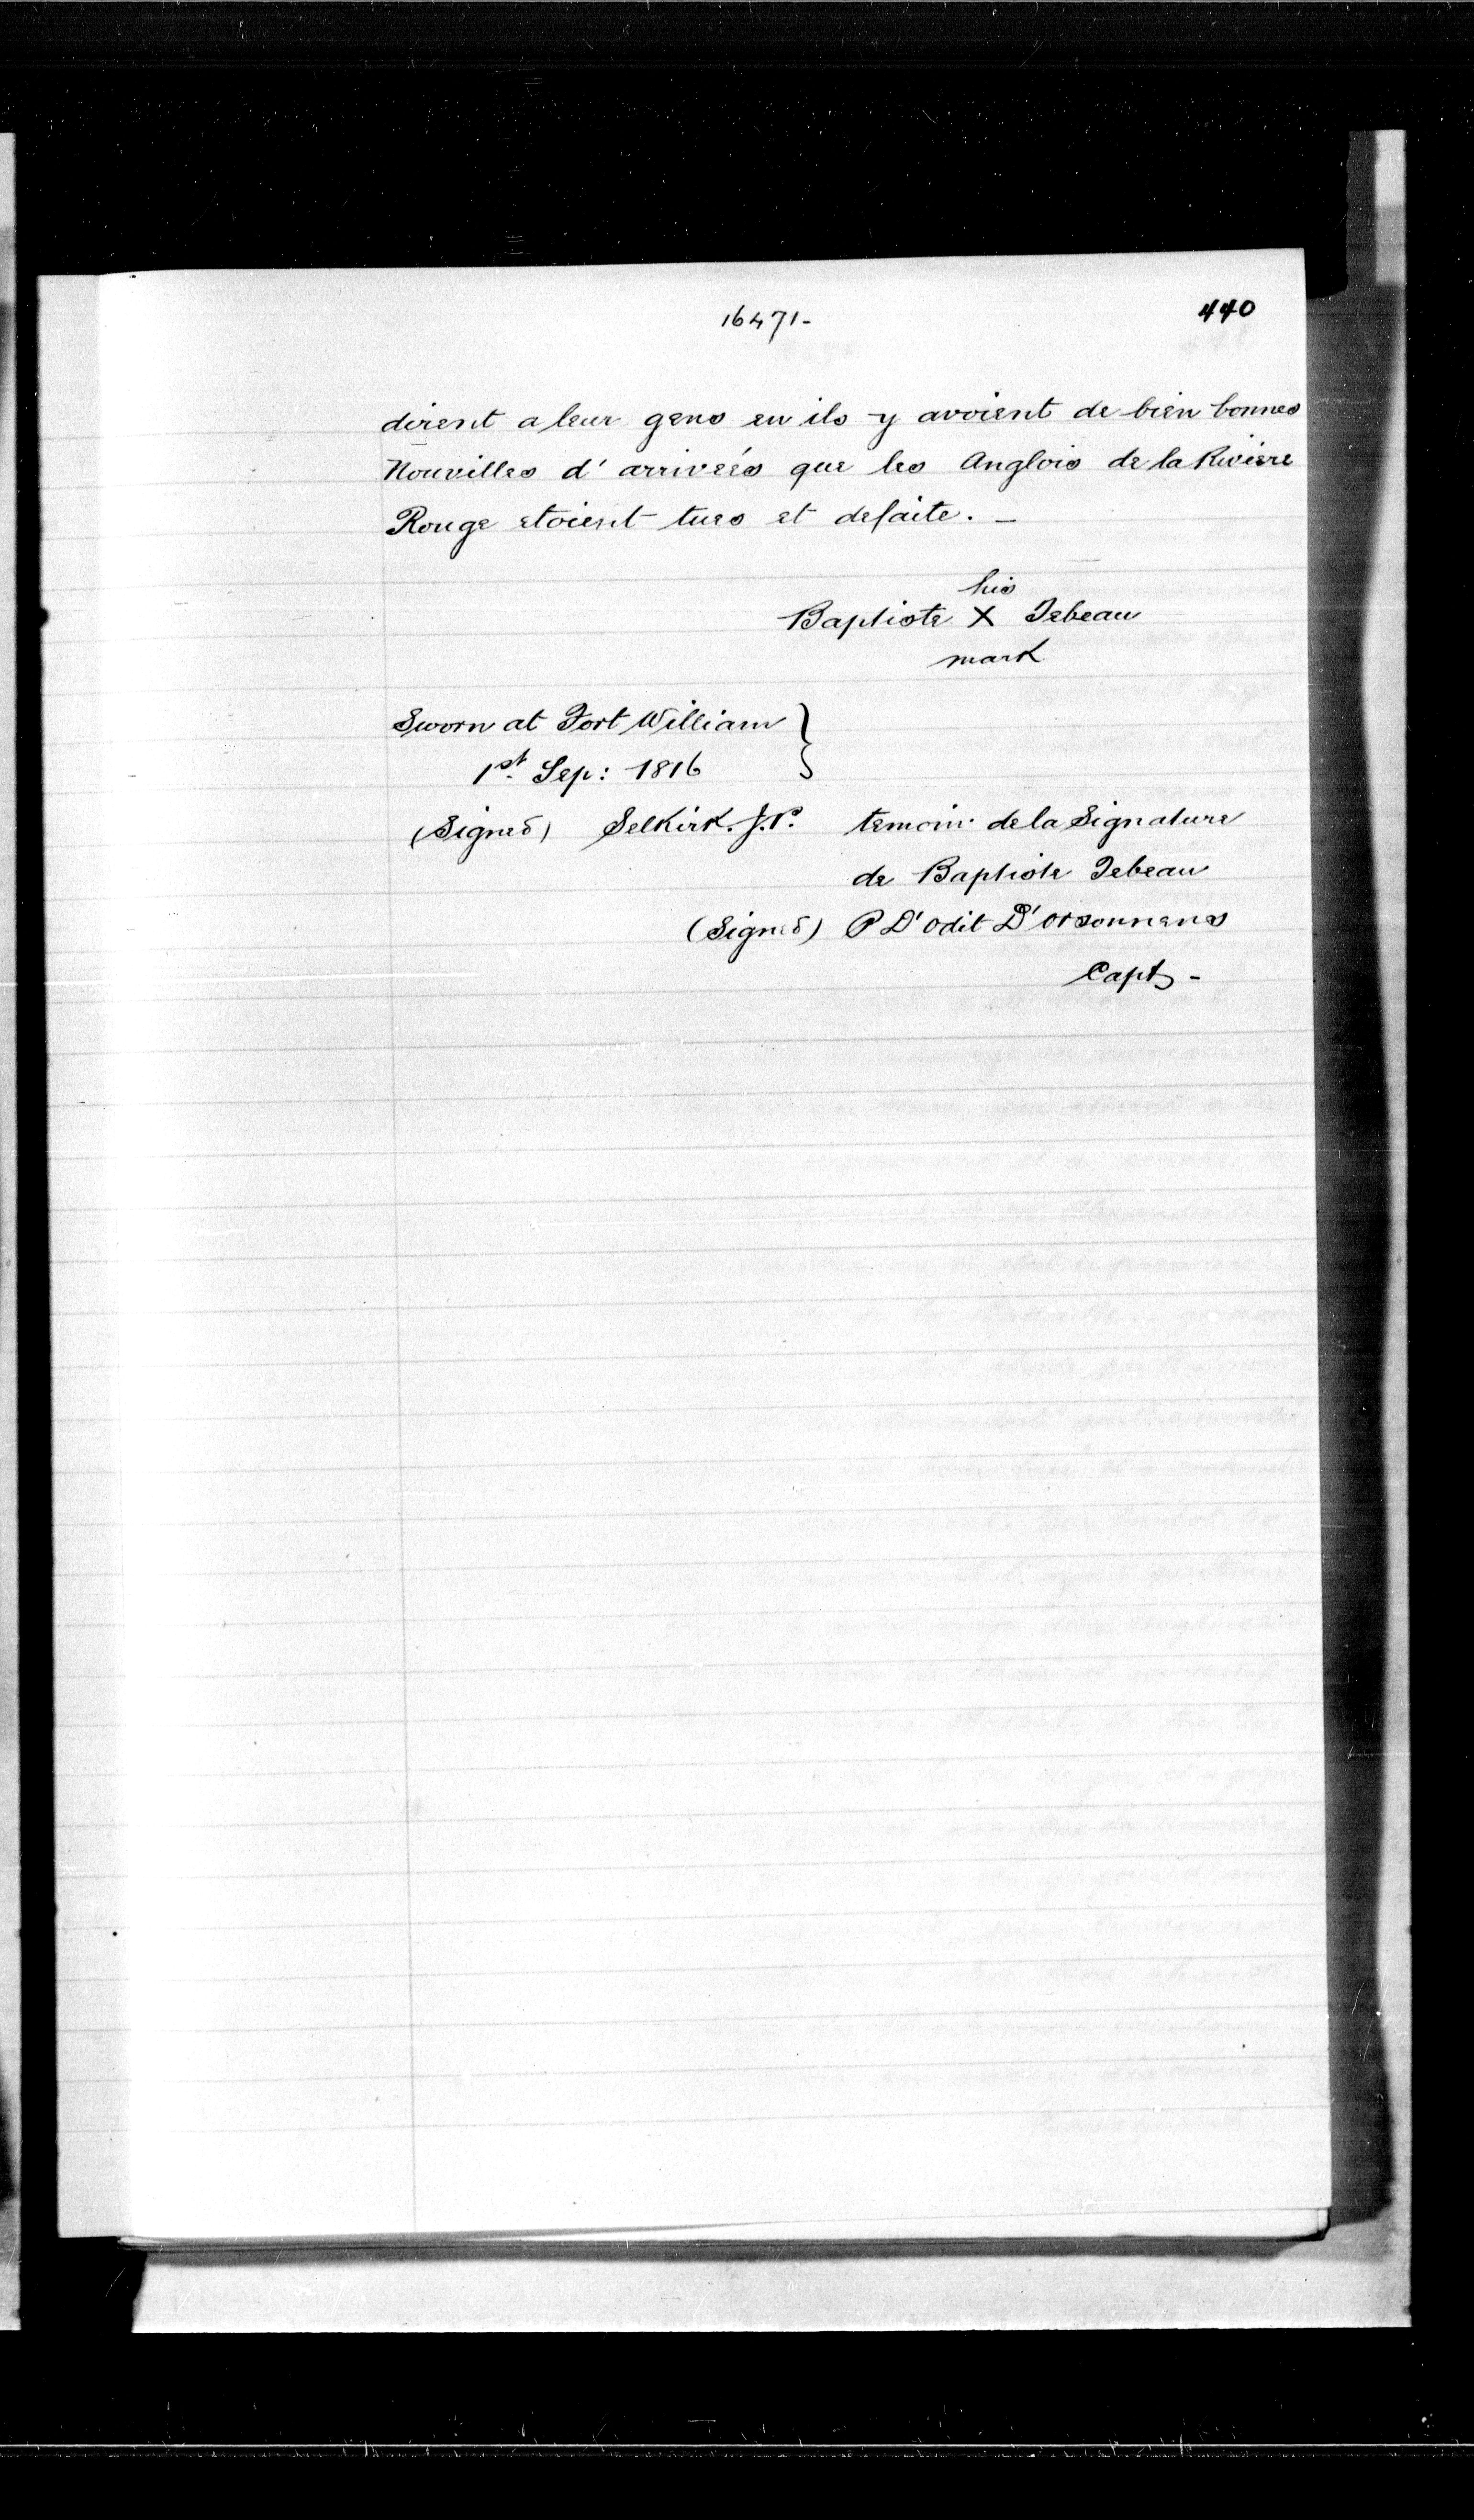 16471-
440
dirent a leur gens en ils y avoient de bien bonnes
Nouvilles d' arriveés que les Anglois de la Riviere
Rouge etoient tues et defaite. -
his
Baptiste X Jebeau
mark
Sworn at Fort William
1st. Sep: 1816
(Signed) Selkirk. J.P. temoin de la Signature
de Baptiste Jebeau
(Signed) P D' Odit D' Orsonnens
Capt -